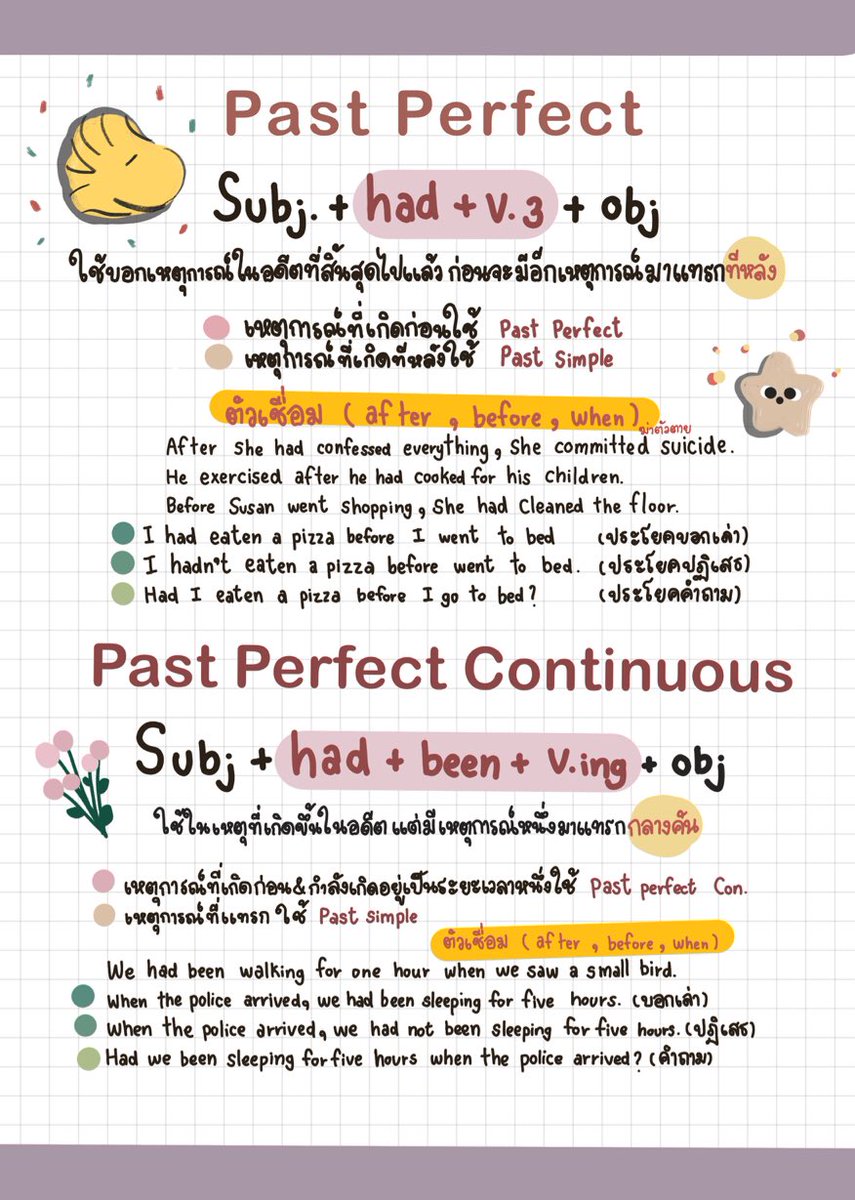 Past Perfect
Subj. + had + V.3 + obj
ใช้บอกเหตุการณ์ในอดีตที่สิ้นสุดไปแล้ว ก่อนจะมีอีกเหตุการณ์มาแทรกทีหลัง
เหตุการณ์ที่เกิดก่อนใช้ Past Perfect
เหตุการณ์ที่เกิดทีหลังใช้ Past Simple
ตัวเชื่อม ( after , before , when )
ฆ่าตัวตาย
After She had confessed everything, She committed suicide.
He exercised after he had cooked for his children.
Before Susan went shopping, She had Cleaned the floor.
I had eaten a pizza before I went to bed (ประโยคบอกเล่า)
I hadn't eaten a pizza before went to bed. (ประโยคปฏิเสธ)
Had I eaten a pizza before I go to bed? (ประโยคคำถาม)
Past Perfect Continuous
Subj + had + been + V.ing + obj
ใช้ในเหตุที่เกิดขึ้นในอดีต แต่มีเหตุการณ์หนึ่งมาแทรกกลางคัน
เหตุการณ์ที่เกิดก่อน&กำลังเกิดอยู่เป็นระยะเวลาหนึ่งใช้ Past perfect Con.
เหตุการณ์ที่แทรก ใช้ Past simple
ตัวเชื่อม ( after , before , when )
We had been walking for one hour when we saw a small bird.
When the police arrived, we had been sleeping for five hours. (บอกเล่า)
When the police arrived, we had not been sleeping for five hours. (ปฏิเสธ)
Had we been sleeping for five hours when the police arrived? (คำถาม)